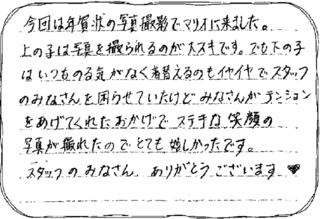 今回は年賀状の写真撮影でマリオに来ました。
上の子は写真を撮られるのが大スキです。でも下の子
はいつものる気がなく着替えるのもイヤイヤでスタッフ
のみなさんを困らせていたけどみなさんがテンション
をあげてくれたおかげでステキな笑顔の
写真が撮れたのでとても嬉しかったです。
スタッフのみなさん ありがとうございます♥